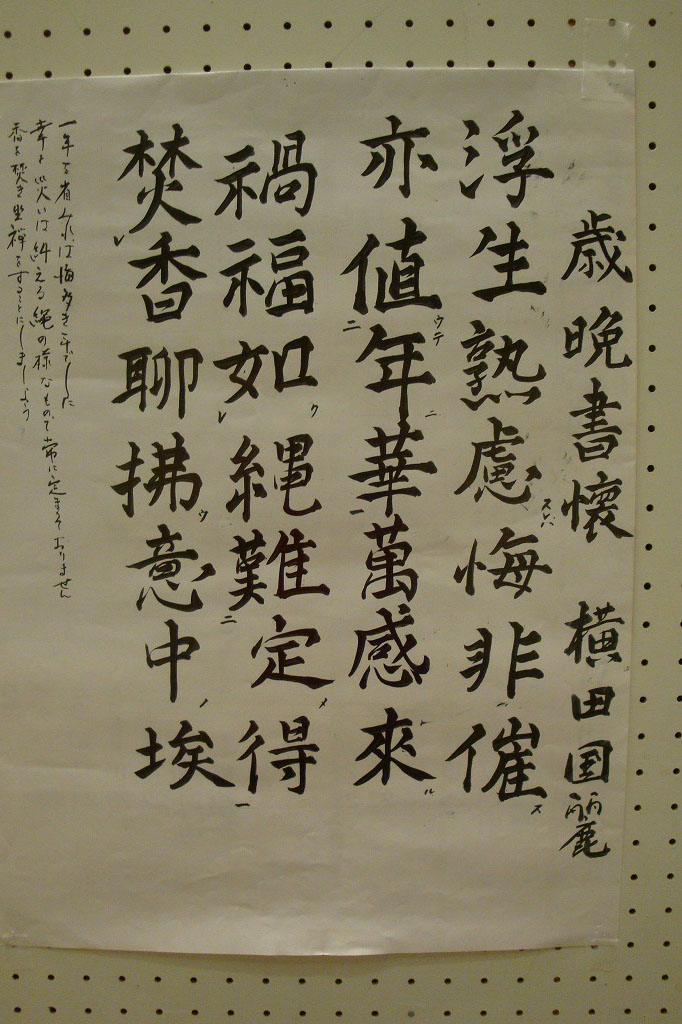 歳晩書懐 横田国麗
浮生熟慮スレバ悔非催ス
亦値ウテ二年ニ華一萬感來ル
禍福如クレ縄難二定メ得一
焚レ香聊拂ウ意中ノ埃
一年を省みれば悔多き年でした
幸と災いは糾える縄の様なもので常に定まっておりません
香を焚き坐禅をすることにしましょう